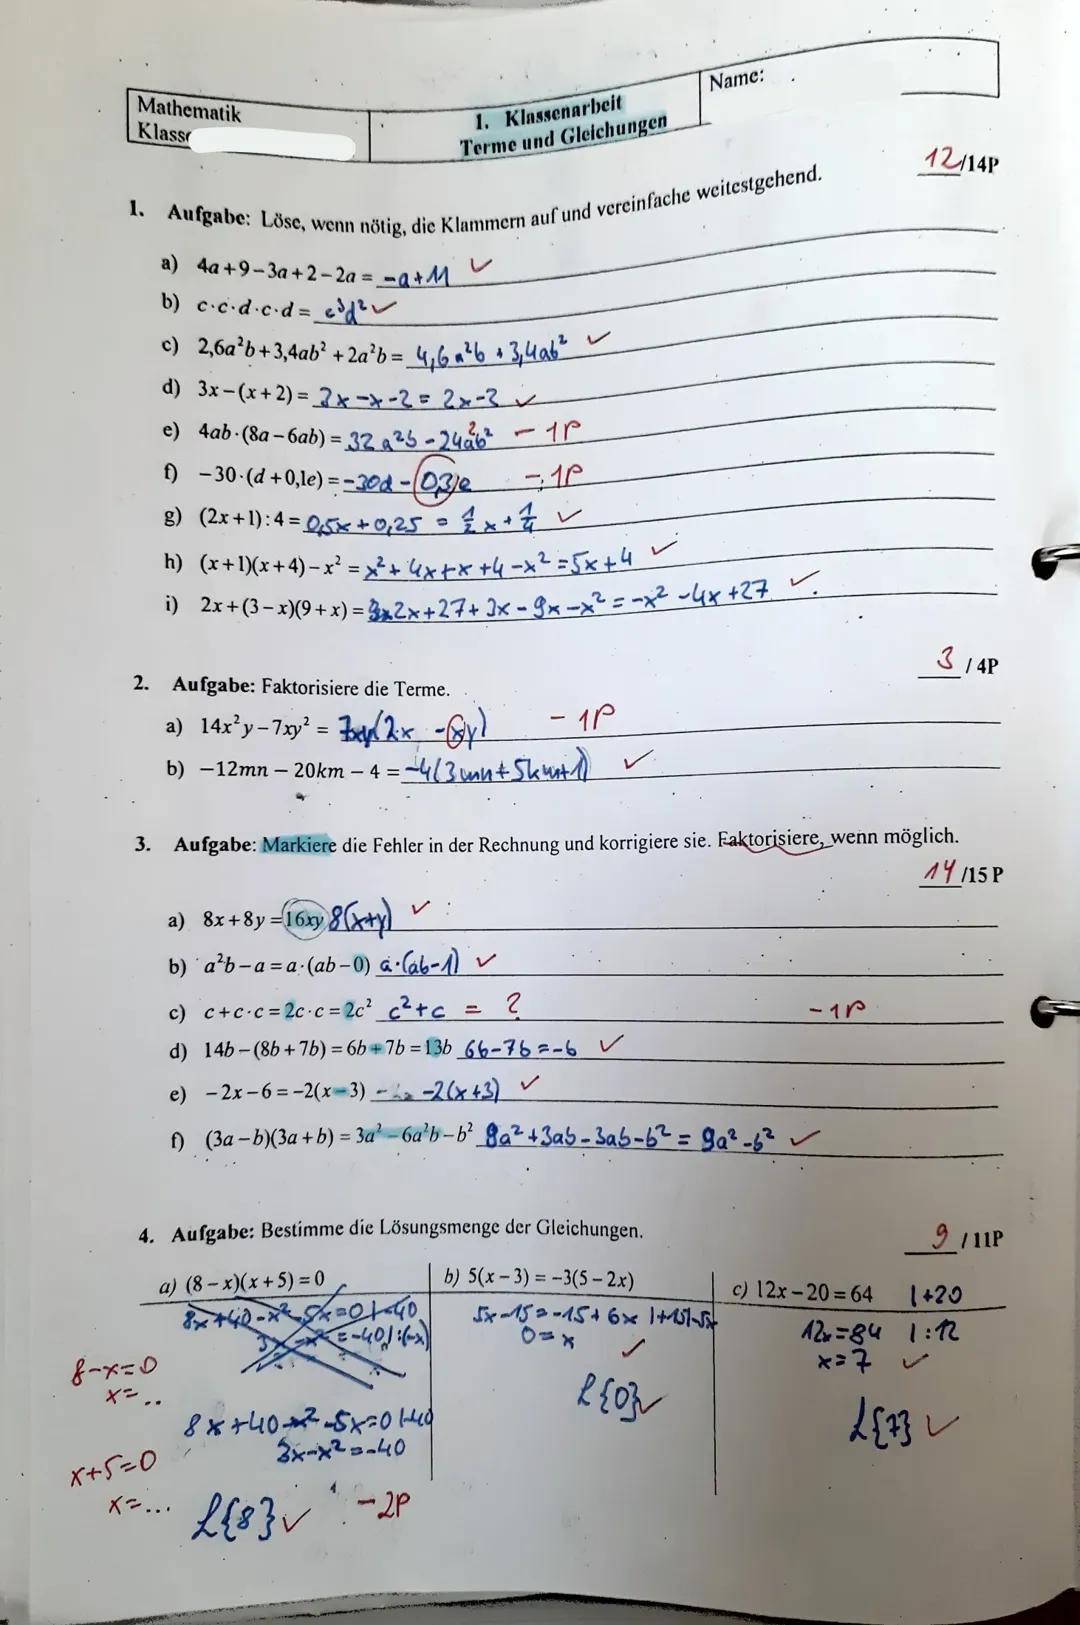 Mathematik
Klasse
1. Klassenarbeit
Terme und Gleichungen
Name:
12/14P
1. Aufgabe: Löse, wenn nötig, die Klammern auf und vereinfache weitestgehend.
a) 4a+9−3a+2−2a = -a+11 ✓
b) c·c·d·c·d = c³d² ✓
c) 2,6a²b+3,4ab²+2a²b = 4,6a²b + 3,4ab² ✓
d) 3x−(x+2) = 3x-x-2 = 2x-2 ✓
e) 4ab·(8a−6ab) = 32a²b - 24a²b² -1P
f) −30·(d+0,1e) = -30d - 0,3e -1P
g) (2x+1):4 = 0,5x+0,25 = 1/2 x + 1/4 ✓
h) (x+1)(x+4)−x² = x²+4x+x+4-x² = 5x+4 ✓
i) 2x+(3−x)(9+x) = 2x+27+3x-9x-x² = -x²-4x+27 ✓
3 /4P
2. Aufgabe: Faktorisiere die Terme.
a) 14x²y−7xy² = 7xy(2x - xy) -1P
b) −12mn − 20km − 4 = -4(3mn+5km+1) ✓
3. Aufgabe: Markiere die Fehler in der Rechnung und korrigiere sie. Faktorisiere, wenn möglich.
14/15 P
a) 8x+8y = 16xy 8(x+y) ✓
b) a²b−a = a·(ab−0) a·(ab-1) ✓
c) c+c·c = 2c·c = 2c² c²+c = ? -1P
d) 14b−(8b+7b) = 6b+7b = 13b 6b-7b=-b ✓
e) −2x−6 = −2(x−3) -2(x+3) ✓
f) (3a−b)(3a+b) = 3a²−6a²b−b² 9a²+3ab-3ab-b² = 9a²-b² ✓
4. Aufgabe: Bestimme die Lösungsmenge der Gleichungen.
9 /11P
a) (8−x)(x+5) = 0
8x+40-x²-5x=0 |-40
3x-x²=-40 |:(-x)
8-x=0
x=..
8x+40-x²-5x=0 |-40
3x-x²=-40
x+5=0
x=...
L{8} ✓ -2P
b) 5(x−3) = −3(5−2x)
5x-15=-15+6x |+15|-5x
0=x ✓
L{0} ✓
c) 12x−20 = 64 |+20
12x=84 |:12
x=7 ✓
L{7} ✓